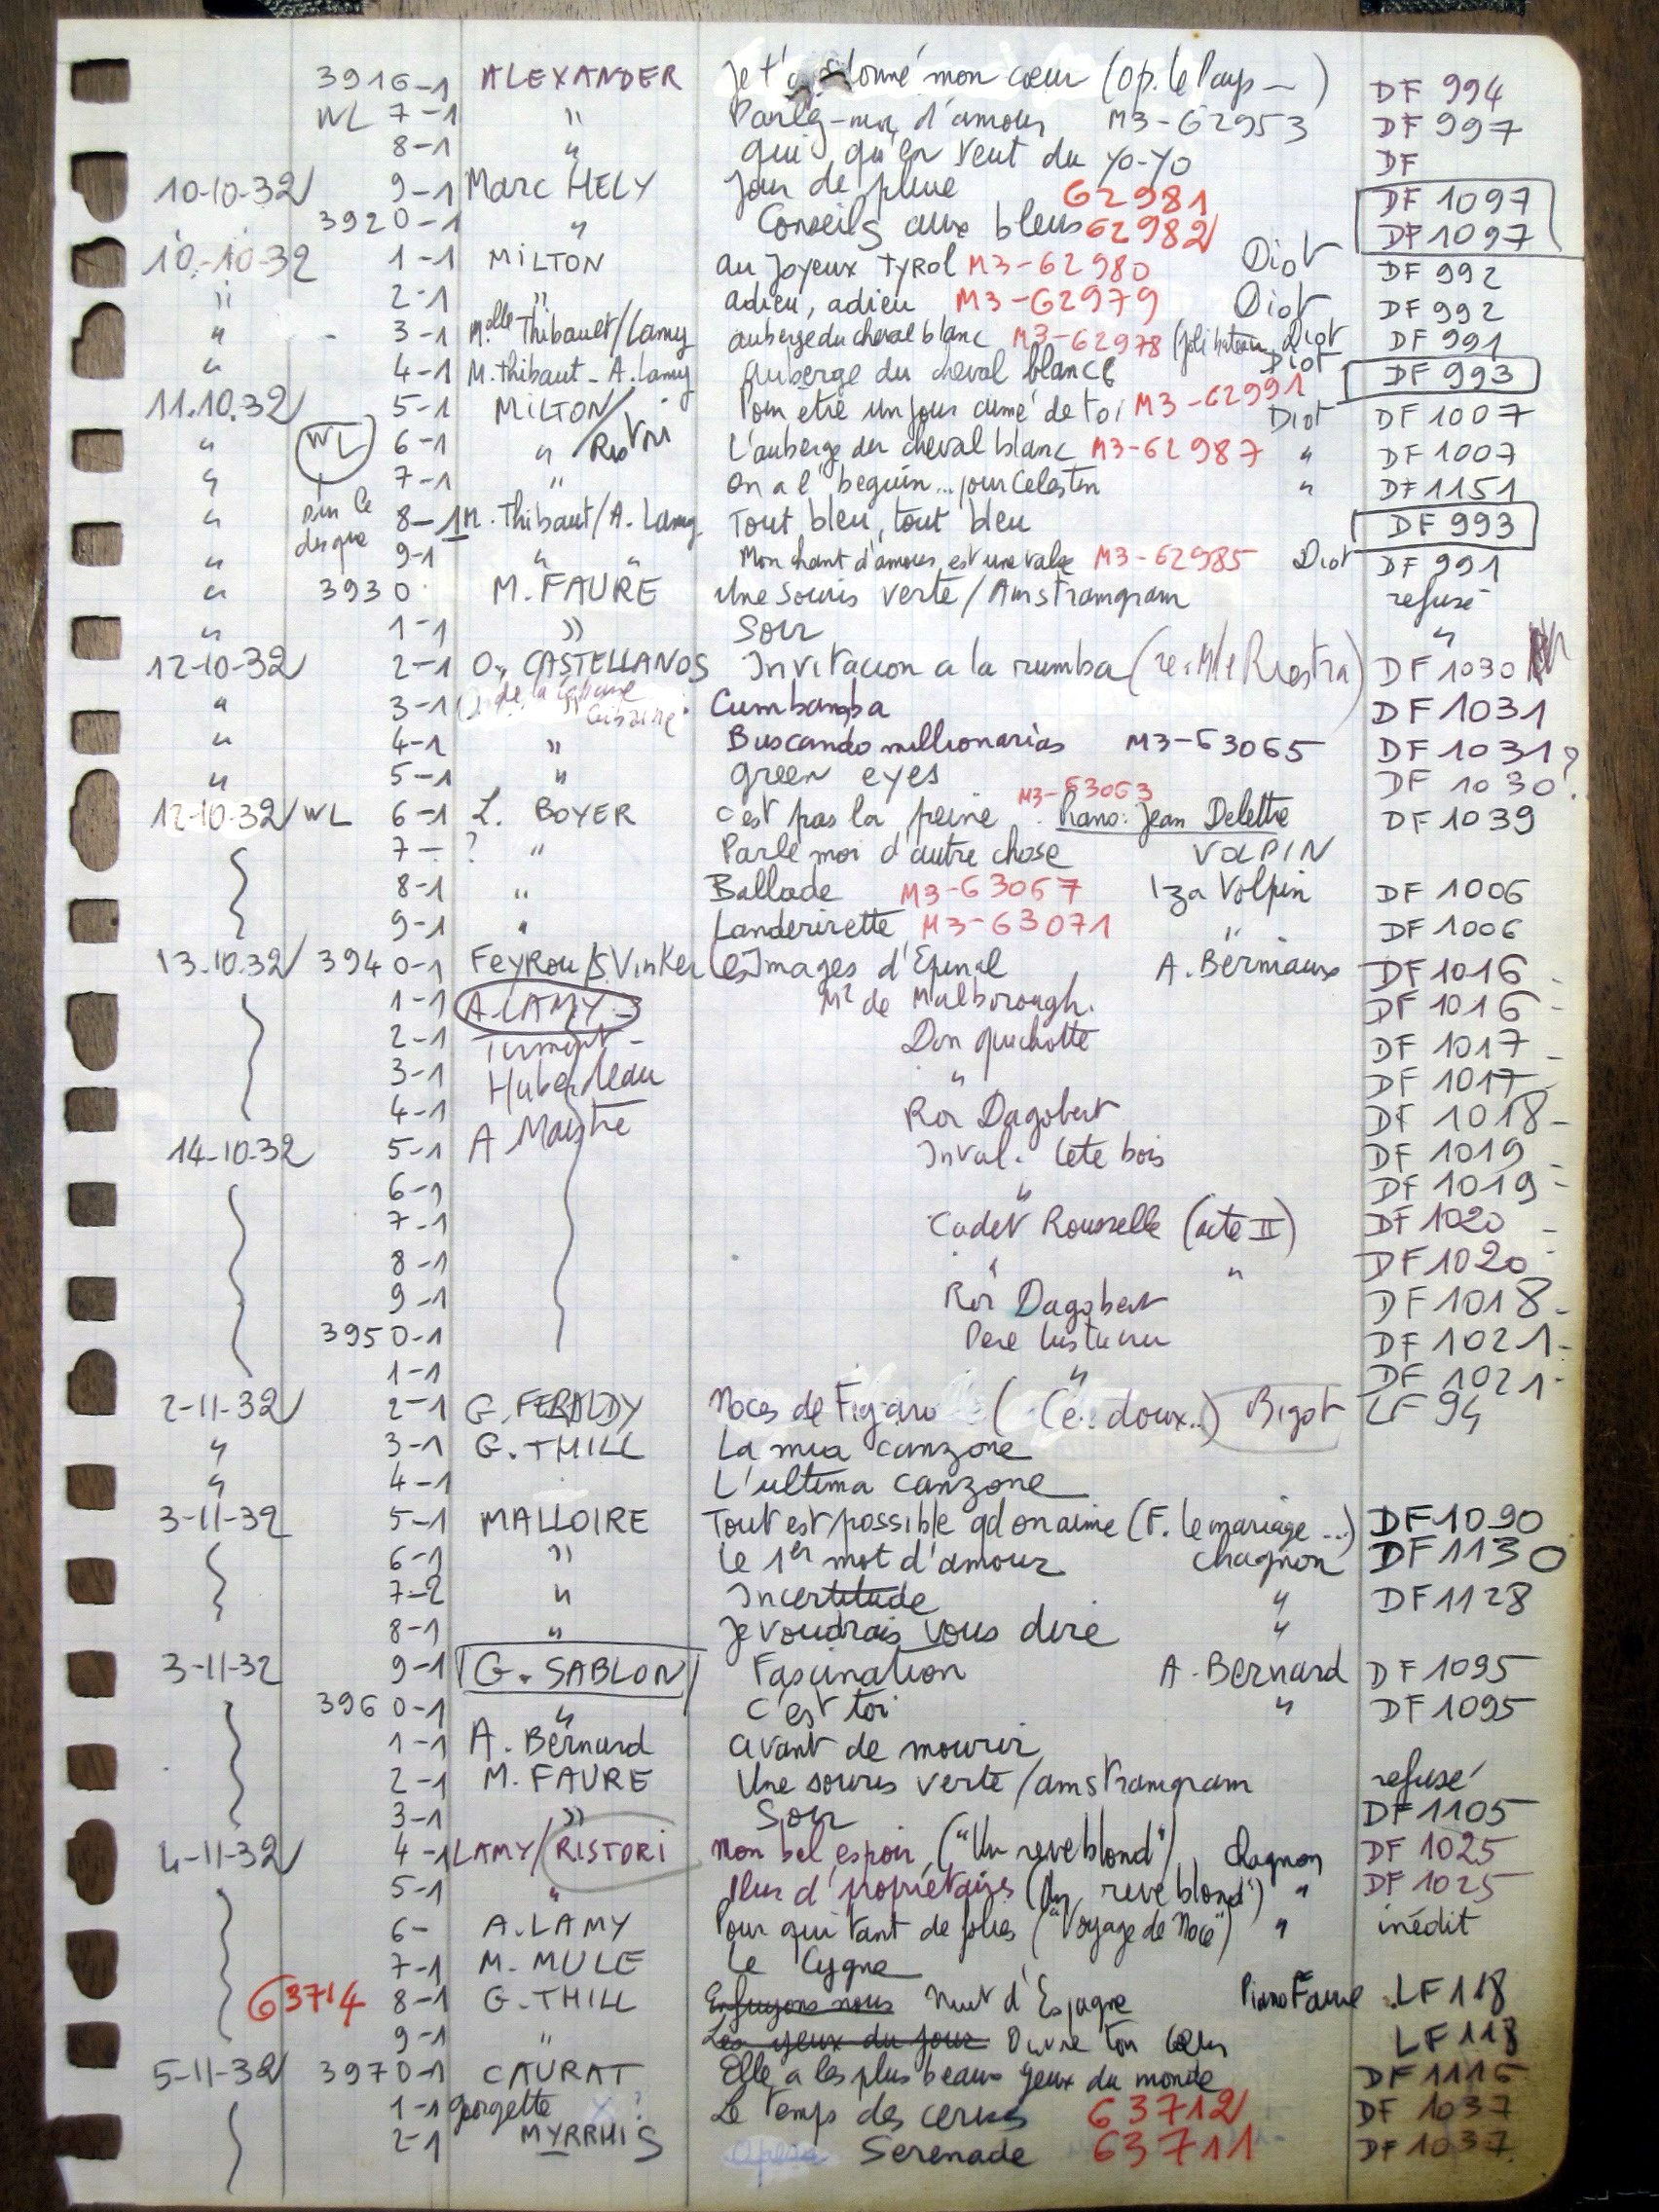 3916-1 ALEXANDER Je t'ai donné mon cœur (op. le Pays —) DF 994
WL 7-1 " Parlez-moi d'amour M3-62953 DF 997
8-1 " qui qu'en veut du yo-yo DF
10-10-32 9-1 Marc HELY Jour de pluie 62981 DF 1097
3920-1 " Conseils aux bleus 62982 DF 1097
10-10-32 1-1 MILTON au Joyeux TYROL M3-62980 Diot DF 992
" 2-1 " adieu, adieu M3-62979 Diot DF 992
" 3-1 Melle Thibault/Lamy auberge du cheval blanc M3-62978 (joli bateau Diot DF 991
" 4-1 M. Thibaut - A. Lamy auberge du cheval blanc 6 Diot DF 993
11.10.32 5-1 MILTON/ Pour être un jour aimé de toi M3-62991 Diot DF 1007
" WL 6-1 " /Ristori L'auberge du cheval blanc M3-62987 " DF 1007
" 7-1 " On a l'beguin... pour Celestin " DF 1151
" sur le disque 8-1 M. Thibaut/A. Lamy Tout bleu, tout bleu DF 993
" 9-1 " " Mon chant d'amour est une valse M3-62985 Diot DF 991
" 3930 M. FAURE Une souris verte/Amstramgram refusé
" 1-1 " Soir "
12-10-32 2-1 O. CASTELLANOS Invitacion a la rumba (re: Mlle Riestra) DF 1030
" 3-1 de la Cabane Cubaine Cumbamba DF 1031
" 4-1 " Buscando millionarias M3-63065 DF 1031?
" 5-1 " green eyes DF 1030?
12-10-32 WL 6-1 L. BOYER c'est pas la peine M3-63063 Piano: Jean Delettre DF 1039
7- ? " Parle moi d'autre chose VOLPIN
8-1 " Ballade M3-63067 Iza Volpin DF 1006
9-1 " Landerirette M3-63071 " DF 1006
13.10.32 3940-1 Feyrou/S. Vinker les Images d'Epinal A. Bernaux DF 1016 -
1-1 A LAMY - Mr de Malborough. DF 1016 -
2-1 Tirmont - Don quichotte DF 1017 -
3-1 Huberdeau " DF 1017 -
4-1 Roi Dagobert DF 1018 -
14-10-32 5-1 A Maistre Inval. tete bois DF 1019 -
6-1 " DF 1019 -
7-1 Cadet Rousselle (acte II) DF 1020 -
8-1 " " DF 1020 -
9-1 Roi Dagobert DF 1018 -
3950-1 Pere lustucru DF 1021 -
1-1 " DF 1021 -
2-11-32 2-1 G. FERALDY Noces de Figaro (Ce. doux..) Bigot LF 94
" 3-1 G. THILL La mia canzone
" 4-1 L'ultima canzone
3-11-32 5-1 MALLOIRE Tout est possible qd on aime (F. le mariage ...) DF 1090
6-1 " Le 1er mot d'amour chagnon DF 1130
7-2 " Incertitude " DF 1128
8-1 " Je voudrais vous dire "
3-11-32 9-1 G. SABLON Fascination A. Bernard DF 1095
3960-1 " C'est toi " DF 1095
1-1 A. Bernard avant de mourir
2-1 M. FAURE Une souris verte/amstramgram refusé
3-1 " Soir DF 1105
4-11-32 4-1 LAMY/RISTORI Mon bel espoir ("Un reve blond") Chagnon DF 1025
5-1 " Plus d'propriétaires (Un reve blond") " DF 1025
6- A. LAMY Pour qui tant de folies ("Voyage de Noce") " inédit
7-1 M. MULE Le Cygne
63714 8-1 G. THILL Enfuyons nous Nuit d'Espagne Piano Faure LF 118
9-1 " Les yeux du jour Ouvre ton cœur LF 118
5-11-32 3970-1 CAURAT Elle a les plus beaux yeux du monde DF 1116
1-1 georgette ? Le Temps des cerises 63712 DF 1037
2-1 MYRRHIS Opera Serenade 63711 DF 1037